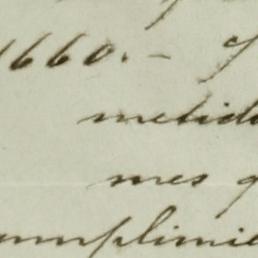 1660. -
metid
mes q
umplimie